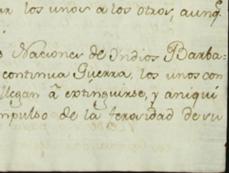 ar los unos a los otros, aunq.
s Naciones de Indios Barba-
continua Guerra, los unos con
llegan a extinguirse, y aniqui
mpulso de la ferocidad de su